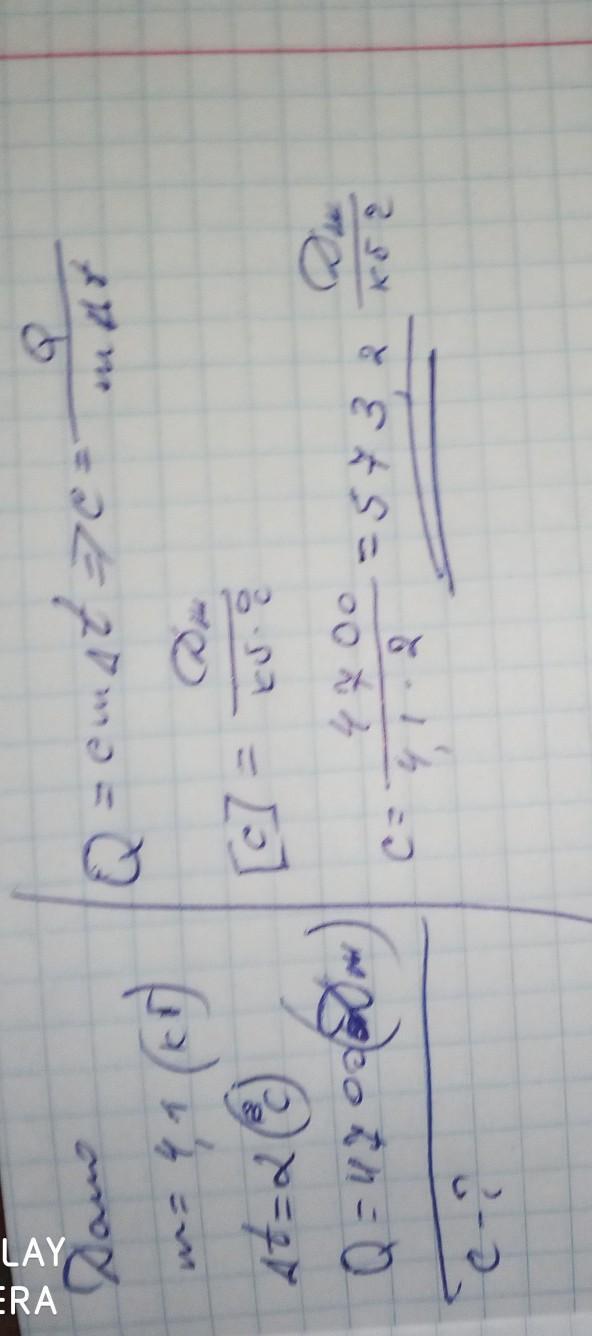 Дано
m = 4,1 (кг)
Δt = 2 (°C)
Q = 4700 (Дж)
c - ?
Q = cmΔt => c = Q / mΔt
[c] = Дж / кг·°C
c = 4700 / 4,1 · 2 = 573,2 Дж / кг °C
LAY
ERA